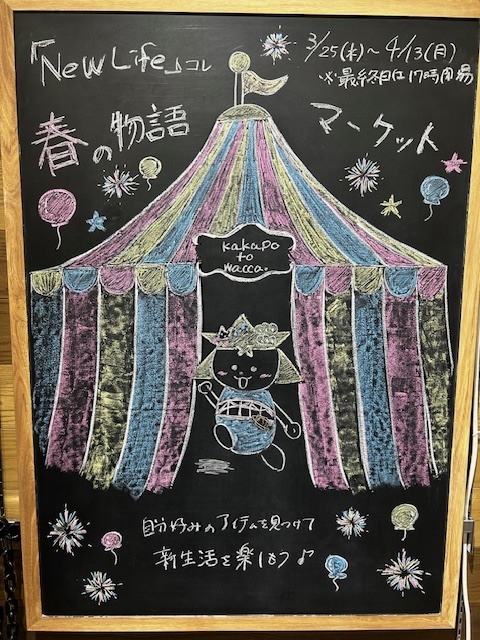 「New Life」コレ
3/25(水)～4/13(月)
※最終日は17時閉場
春の物語
マーケット
kakapo
to
wacca.
自分好みのアイテムを見つけて
新生活を楽しもう♪